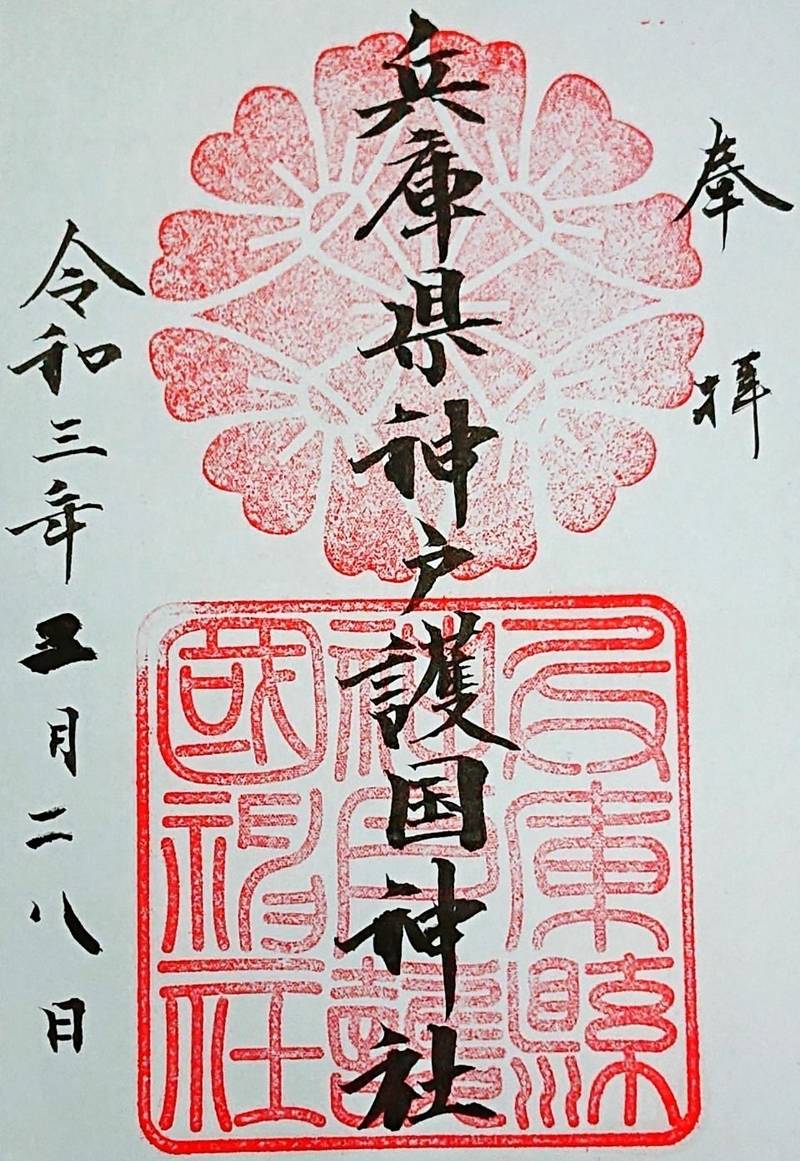 奉拝
兵庫県神戸護国神社
兵庫縣
神戸護
國神社
令和三年五月二八日